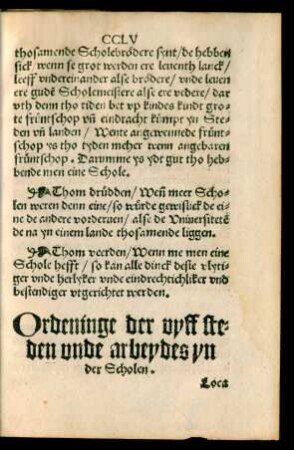 CCLV
thosamende Scholebrödere synt/ de hebben
sick/ wenn se grot werden ere leuenth lanck/
leeff vndereinander alse brödere/ vnde leuen
ere gude Scholemeistere alse ere vedere/ dar
vth denn tho tiden bet vp kindes kindt gro-
te früntschop vñ eindracht kümpt yn Ste-
den vñ landen/ Wente angewennede frünt-
schop ys tho tyden meher wenn angebaren
früntschop. Darumme ys ydt gut tho heb-
bende men eine Schole.
Thom drüdden/ Weñ meer Scho-
len weren denn eine/ so würde gewislick de ei-
ne de andere vorderuen/ alse de Vniversitetẽ
de na yn einem lande thosamende liggen.
Thom veerden/ Wenn me men eine
Schole hefft/ so kan alle dinck deste vlyti-
ger vnde herlyker vnde eindrechtichliker vnd
bestendiger vtgerichtet werden.
Ordeninge der vyff ste-
den vnde arbeydes yn
der Scholen.
Loca